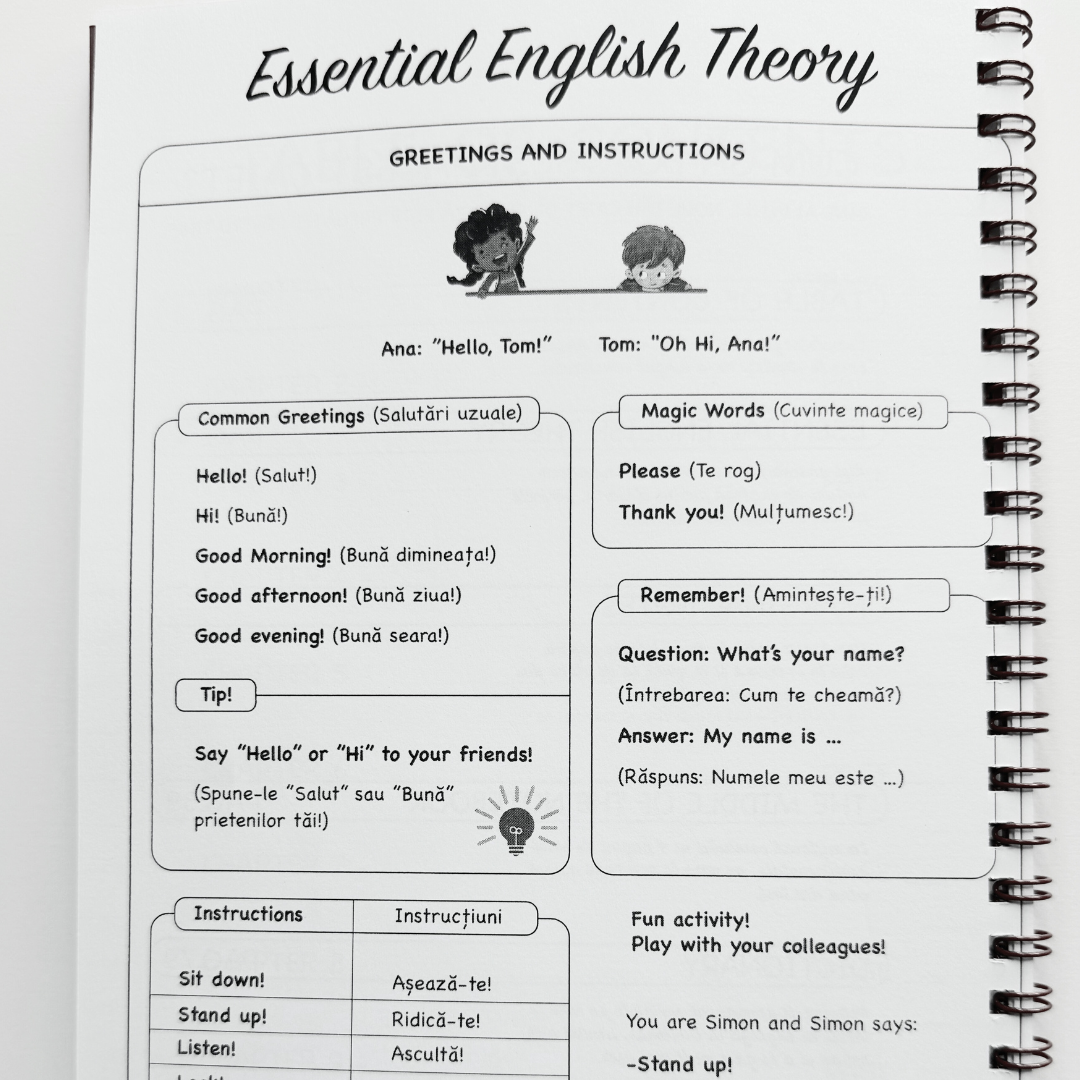 Essential English Theory
GREETINGS AND INSTRUCTIONS
Ana: "Hello, Tom!"
Tom: "Oh Hi, Ana!"
Common Greetings (Salutări uzuale)
Hello! (Salut!)
Hi! (Bună!)
Good Morning! (Bună dimineața!)
Good afternoon! (Bună ziua!)
Good evening! (Bună seara!)
Tip!
Say "Hello" or "Hi" to your friends!
(Spune-le "Salut" sau "Bună"
prietenilor tăi!)
Magic Words (Cuvinte magice)
Please (Te rog)
Thank you! (Mulțumesc!)
Remember! (Amintește-ți!)
Question: What's your name?
(Întrebarea: Cum te cheamă?)
Answer: My name is ...
(Răspuns: Numele meu este ...)
Instructions Instrucțiuni
Sit down! Așează-te!
Stand up! Ridică-te!
Listen! Ascultă!
Fun activity!
Play with your colleagues!
You are Simon and Simon says:
-Stand up!